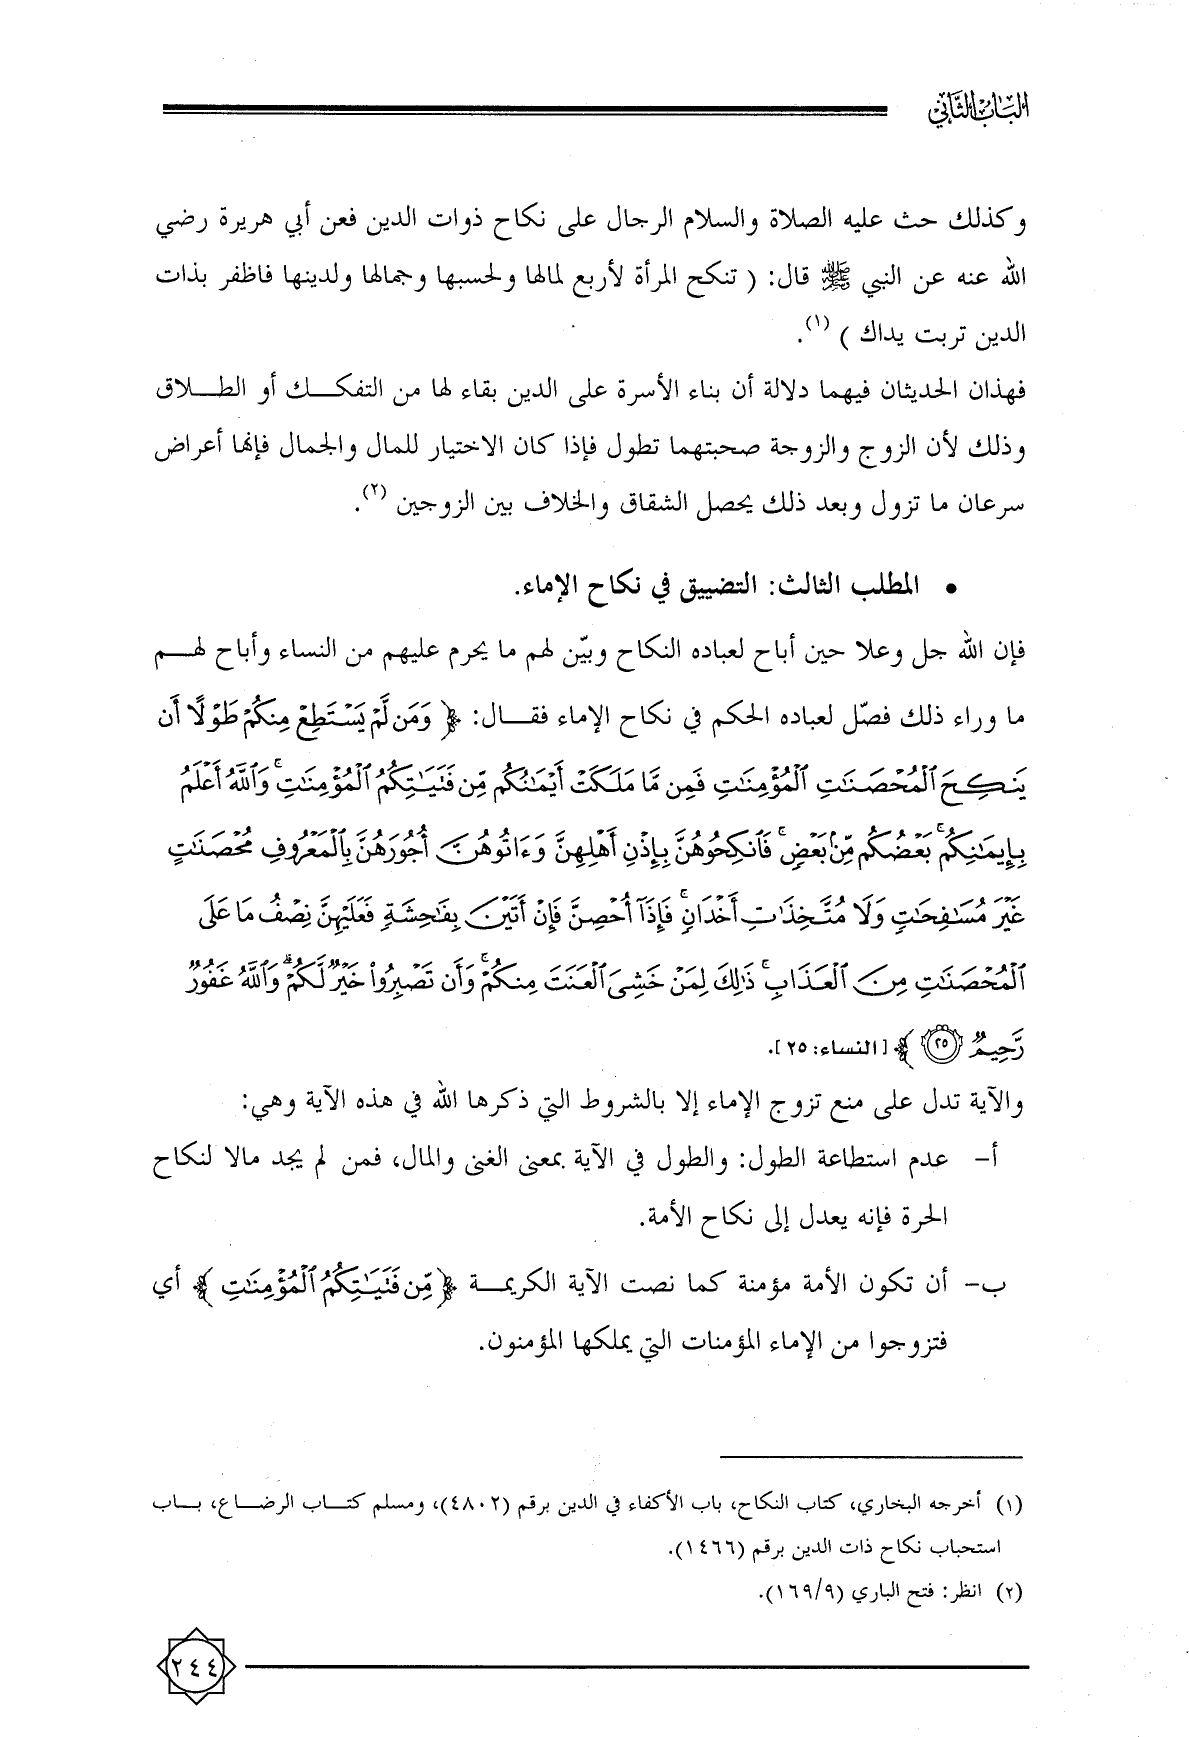 الباب الثاني
وكذلك حث عليه الصلاة والسلام الرجال على نكاح ذوات الدين فعن أبي هريرة رضي
الله عنه عن النبي ﷺ قال: ( تنكح المرأة لأربع لمالها ولحسبها وجمالها ولدينها فاظفر بذات
الدين تربت يداك ) (١).
فهذان الحديثان فيهما دلالة أن بناء الأسرة على الدين بقاء لها من التفكك أو الطلاق
وذلك لأن الزوج والزوجة صحبتهما تطول فإذا كان الاختيار للمال والجمال فإنها أعراض
سرعان ما تزول وبعد ذلك يحصل الشقاق والخلاف بين الزوجين (٢).
• المطلب الثالث: التضييق في نكاح الإماء.
فإن الله جل وعلا حين أباح لعباده النكاح وبيّن لهم ما يحرم عليهم من النساء وأباح لهم
ما وراء ذلك فصّل لعباده الحكم في نكاح الإماء فقال: ﴿ وَمَن لَّمْ يَسْتَطِعْ مِنكُمْ طَوْلًا أَن
يَنكِحَ ٱلْمُحْصَنَٰتِ ٱلْمُؤْمِنَٰتِ فَمِن مَّا مَلَكَتْ أَيْمَٰنُكُم مِّن فَتَيَٰتِكُمُ ٱلْمُؤْمِنَٰتِ ۚ وَٱللَّهُ أَعْلَمُ
بِإِيمَٰنِكُم ۚ بَعْضُكُم مِّنۢ بَعْضٍ ۚ فَٱنكِحُوهُنَّ بِإِذْنِ أَهْلِهِنَّ وَءَاتُوهُنَّ أُجُورَهُنَّ بِٱلْمَعْرُوفِ مُحْصَنَٰتٍ
غَيْرَ مُسَٰفِحَٰتٍ وَلَا مُتَّخِذَٰتِ أَخْدَانٍ ۚ فَإِذَآ أُحْصِنَّ فَإِنْ أَتَيْنَ بِفَٰحِشَةٍ فَعَلَيْهِنَّ نِصْفُ مَا عَلَى
ٱلْمُحْصَنَٰتِ مِنَ ٱلْعَذَابِ ۚ ذَٰلِكَ لِمَنْ خَشِىَ ٱلْعَنَتَ مِنكُمْ ۚ وَأَن تَصْبِرُوا۟ خَيْرٌ لَّكُمْ ۗ وَٱللَّهُ غَفُورٌ
رَّحِيمٌ ٢٥ ﴾ [النساء: ٢٥].
والآية تدل على منع تزوج الإماء إلا بالشروط التي ذكرها الله في هذه الآية وهي:
أ- عدم استطاعة الطول: والطول في الآية بمعنى الغنى والمال، فمن لم يجد مالا لنكاح
الحرة فإنه يعدل إلى نكاح الأمة.
ب- أن تكون الأمة مؤمنة كما نصت الآية الكريمة ﴿ مِّن فَتَيَٰتِكُمُ ٱلْمُؤْمِنَٰتِ ﴾ أي
فتزوجوا من الإماء المؤمنات التي يملكها المؤمنون.
(١) أخرجه البخاري، كتاب النكاح، باب الأكفاء في الدين برقم (٤٨٠٢)، ومسلم كتاب الرضاع، باب
استحباب نكاح ذات الدين برقم (١٤٦٦).
(٢) انظر: فتح الباري (١٦٩/٩).
٢٤٤